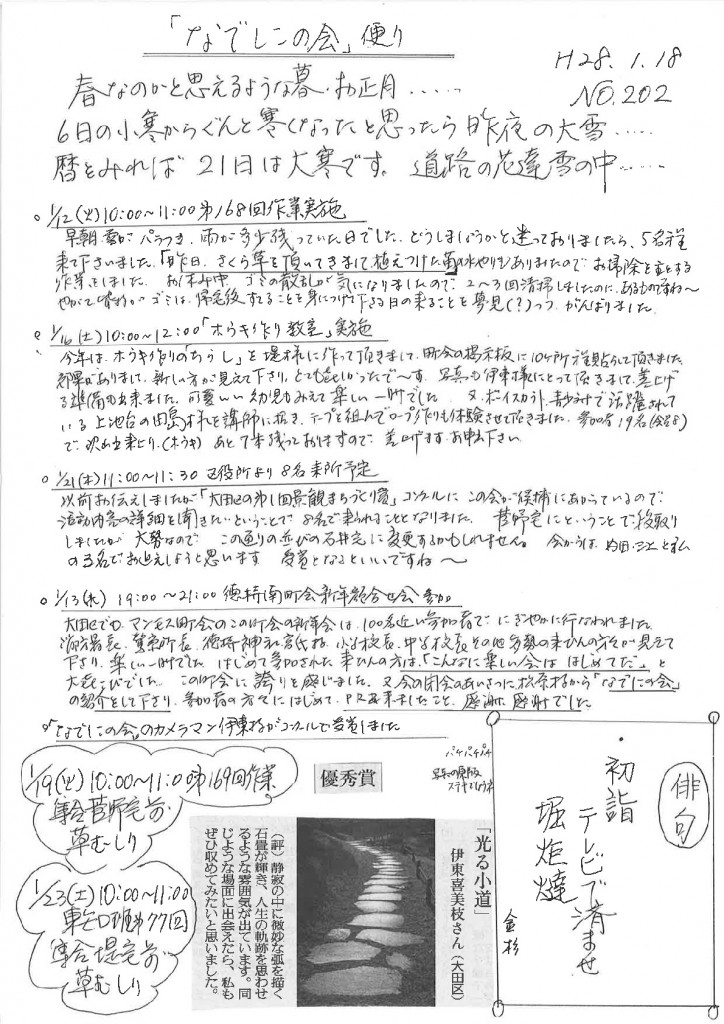 「なでしこの会」便り
H28.1.18
NO.202
春なのかと思えるような暮・お正月‥‥‥
6日の小寒からぐんと寒くなったと思ったら昨夜の大雪‥‥‥
暦をみれば21日は大寒です。道路の花達雪の中‥‥‥
○ 1/12(火)10:00~11:00第168回作業実施
早朝雪がパラつき、雨が多少残っていた日でした。どうしましょうかと迷っておりましたら、5名程
来て下さいました。「昨日、さくら草を頂いてきまして植えつけた
水やりもありましたので、お掃除を主とする
作業をしました。お休み中、ゴミの散乱が気になりましたので、2~3回清掃しましたのに、あるものですね~
ゴミは、帰宅後すてることを身につけて下さる日の来ることを夢見(?)つつ、がんばりました。
○ 1/16(土)10:00~12:00「ホウキ作り教室」実施
今年は、ホウキ作りの「ちらし」を堤様に作って頂きまして、町会の掲示板に10ヶ所程貼らして頂きました。
効果がありまして、新しい方が見えて下さり、とても良かったで~す。写真も伊東様にとって頂きまして、差上げ
る準備も出来ました。可愛いい幼児もみえて楽しい一時でした。又、ボーイスカウト、青少対で活躍されて
いる上池台の田島様を講師に招き、ロープ作りも体験させて頂きました。参加者19名(会員8)
で、(ホウキ)あと7本残っておりますので、差上げます。お申出下さい。
○ 1/21(木)11:00~11:30 区役所より8名来所予定
以前お伝えしましたが「大田区の第1回景観まちづくり賞」コンクールにこの会が候補にあがっているので、
活動内容の詳細を聞きたいということで8名で来られることとなりました。菅野宅にということで段取り
しましたが、大勢なので、この通りの並びの石井宅に変更するかもしれません。会からは、内田・三上と私
の3名でお迎えしようと思います。受賞となるといいですね~
○ 1/13(水) 19:00~21:00 徳持南町会新年顔合せ会参加
大田区でのマンモス町会のこの町会の新年会は、100名近い参加者で、にぎやかに行なわれました。
消防署長、警察所長、徳持神社宮氏様、小学校長、中学校長その他多勢の来ひんの方々が見えて
下さり、楽しい一時でした。はじめて参加された来ひんの方は、「こんなに楽しい会ははじめてだ。」と
大喜びでした。この町会に誇りを感じました。又、会の閉会のあいさつに松原様から「なでしこの会」
の紹介をして下さり、参加者の方々にはじめて、PR出来ましたこと、感謝感謝でした。
○「なでしこの会」のカメラマン伊東様がコンクールで受賞しました
パチパチパチ
1/19(火)10:00~11:00第169回作業
集合菅野宅前
草むしり
1/23(土)10:00~11:00
第77回
集合堤宅前
草むしり
優秀賞
「光る小道」
伊東喜美枝さん(大田区)
(評)静寂の中に微妙な弧を描く
石畳が輝き、人生の軌跡を思わせ
るような雰囲気が出ています。同
じような場面に出会えたら、私も
ぜひ収めてみたいと思いました。
俳句
・初詣
テレビで済ませ
堀炬燵
金杉